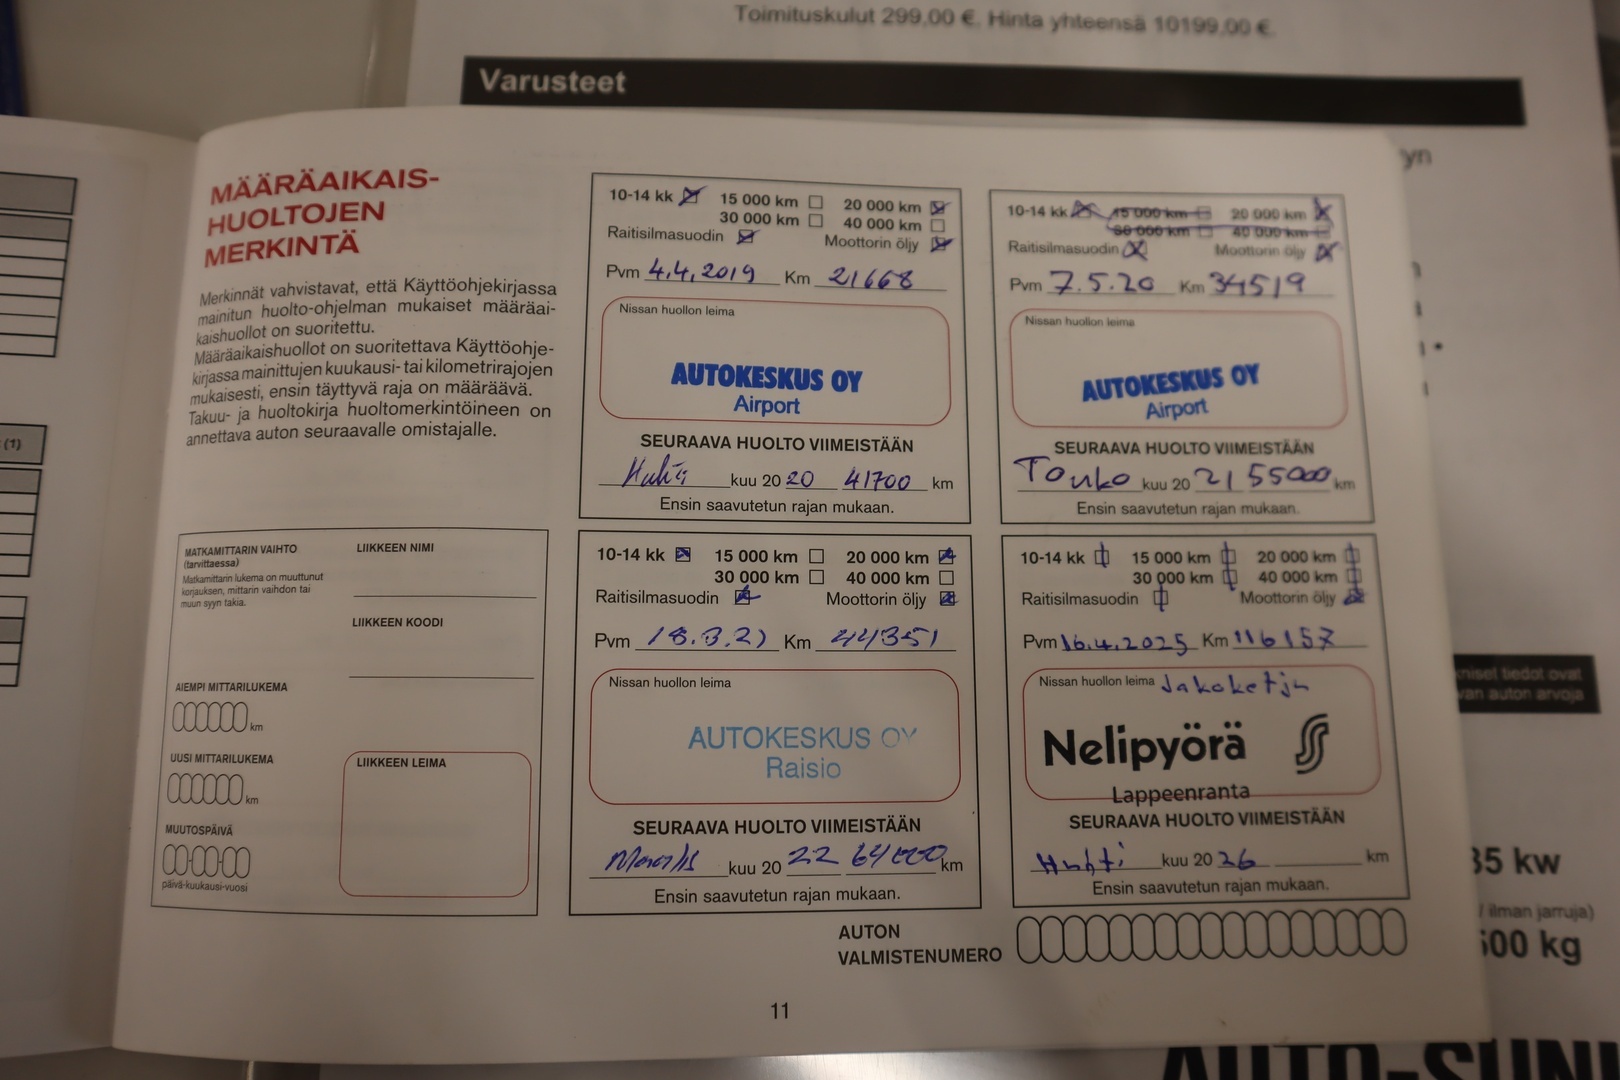 Toimituskulut 299,00 €. Hinta yhteensä 10199,00 €.
Varusteet
yn
MÄÄRÄAIKAIS-
HUOLTOJEN
MERKINTÄ
Merkinnät vahvistavat, että Käyttöohjekirjassa
mainitun huolto-ohjelman mukaiset määräai-
kaishuollot on suoritettu.
Määräaikaishuollot on suoritettava Käyttöohje-
kirjassa mainittujen kuukausi- tai kilometrirajojen
mukaisesti, ensin täyttyvä raja on määräävä.
Takuu- ja huoltokirja huoltomerkintöineen on
annettava auton seuraavalle omistajalle.
(1)
10-14 kk 15 000 km 20 000 km
30 000 km 40 000 km
Raitisilmasuodin Moottorin öljy
Pvm 4.4.2019 Km 21668
Nissan huollon leima
AUTOKESKUS OY
Airport
SEURAAVA HUOLTO VIIMEISTÄÄN
Huhti kuu 20 20 41700 km
Ensin saavutetun rajan mukaan.
10-14 kk 15 000 km 20 000 km
30 000 km 40 000 km
Raitisilmasuodin Moottorin öljy
Pvm 7.5.20 Km 34519
Nissan huollon leima
AUTOKESKUS OY
Airport
SEURAAVA HUOLTO VIIMEISTÄÄN
Touko kuu 20 21 55000 km
Ensin saavutetun rajan mukaan.
MATKAMITTARIN VAIHTO
(tarvittaessa)
Matkamittarin lukema on muuttunut
korjauksen, mittarin vaihdon tai
muun syyn takia.
LIIKKEEN NIMI
LIIKKEEN KOODI
AIEMPI MITTARILUKEMA
km
UUSI MITTARILUKEMA
km
MUUTOSPÄIVÄ
päivä-kuukausi-vuosi
LIIKKEEN LEIMA
10-14 kk 15 000 km 20 000 km
30 000 km 40 000 km
Raitisilmasuodin Moottorin öljy
Pvm 18.3.21 Km 44351
Nissan huollon leima
AUTOKESKUS OY
Raisio
SEURAAVA HUOLTO VIIMEISTÄÄN
Maalis kuu 20 22 64000 km
Ensin saavutetun rajan mukaan.
10-14 kk 15 000 km 20 000 km
30 000 km 40 000 km
Raitisilmasuodin Moottorin öljy
Pvm 16.4.2025 Km 116157
Nissan huollon leima Jakoketju
Nelipyörä
Lappeenranta
SEURAAVA HUOLTO VIIMEISTÄÄN
Huhti kuu 20 26 km
Ensin saavutetun rajan mukaan.
AUTON
VALMISTENUMERO
11
kniset tiedot ovat
van auton arvoja
35 kw
/ ilman jarruja)
500 kg
AUTO-SUNI